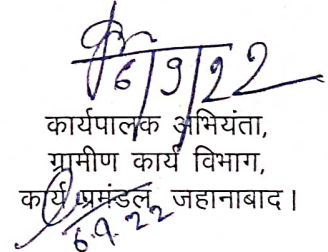 6/9/22
कार्यपालक अभियंता,
ग्रामीण कार्य विभाग,
कार्य प्रमंडल, जहानाबाद।
6.9.22